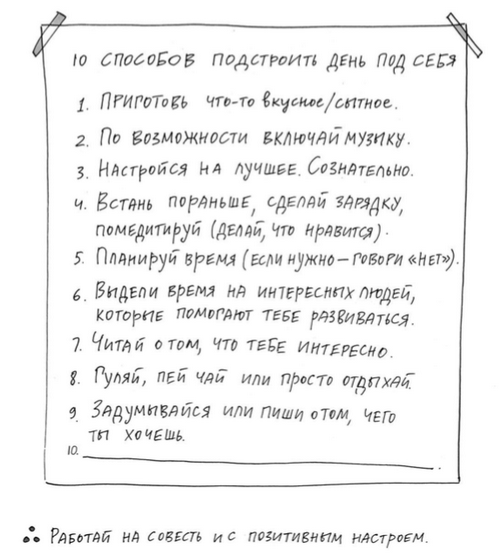 10 способов подстроить день под себя
1. Приготовь что-то вкусное/сытное.
2. По возможности включай музыку.
3. Настройся на лучшее. Сознательно.
4. Встань пораньше, сделай зарядку,
помедитируй (делай, что нравится).
5. Планируй время (если нужно – говори «нет»).
6. Выдели время на интересных людей,
которые помогают тебе развиваться.
7. Читай о том, что тебе интересно.
8. Гуляй, пей чай или просто отдыхай.
9. Задумывайся или пиши о том, чего
ты хочешь.
10.
Работай на совесть и с позитивным настроем.